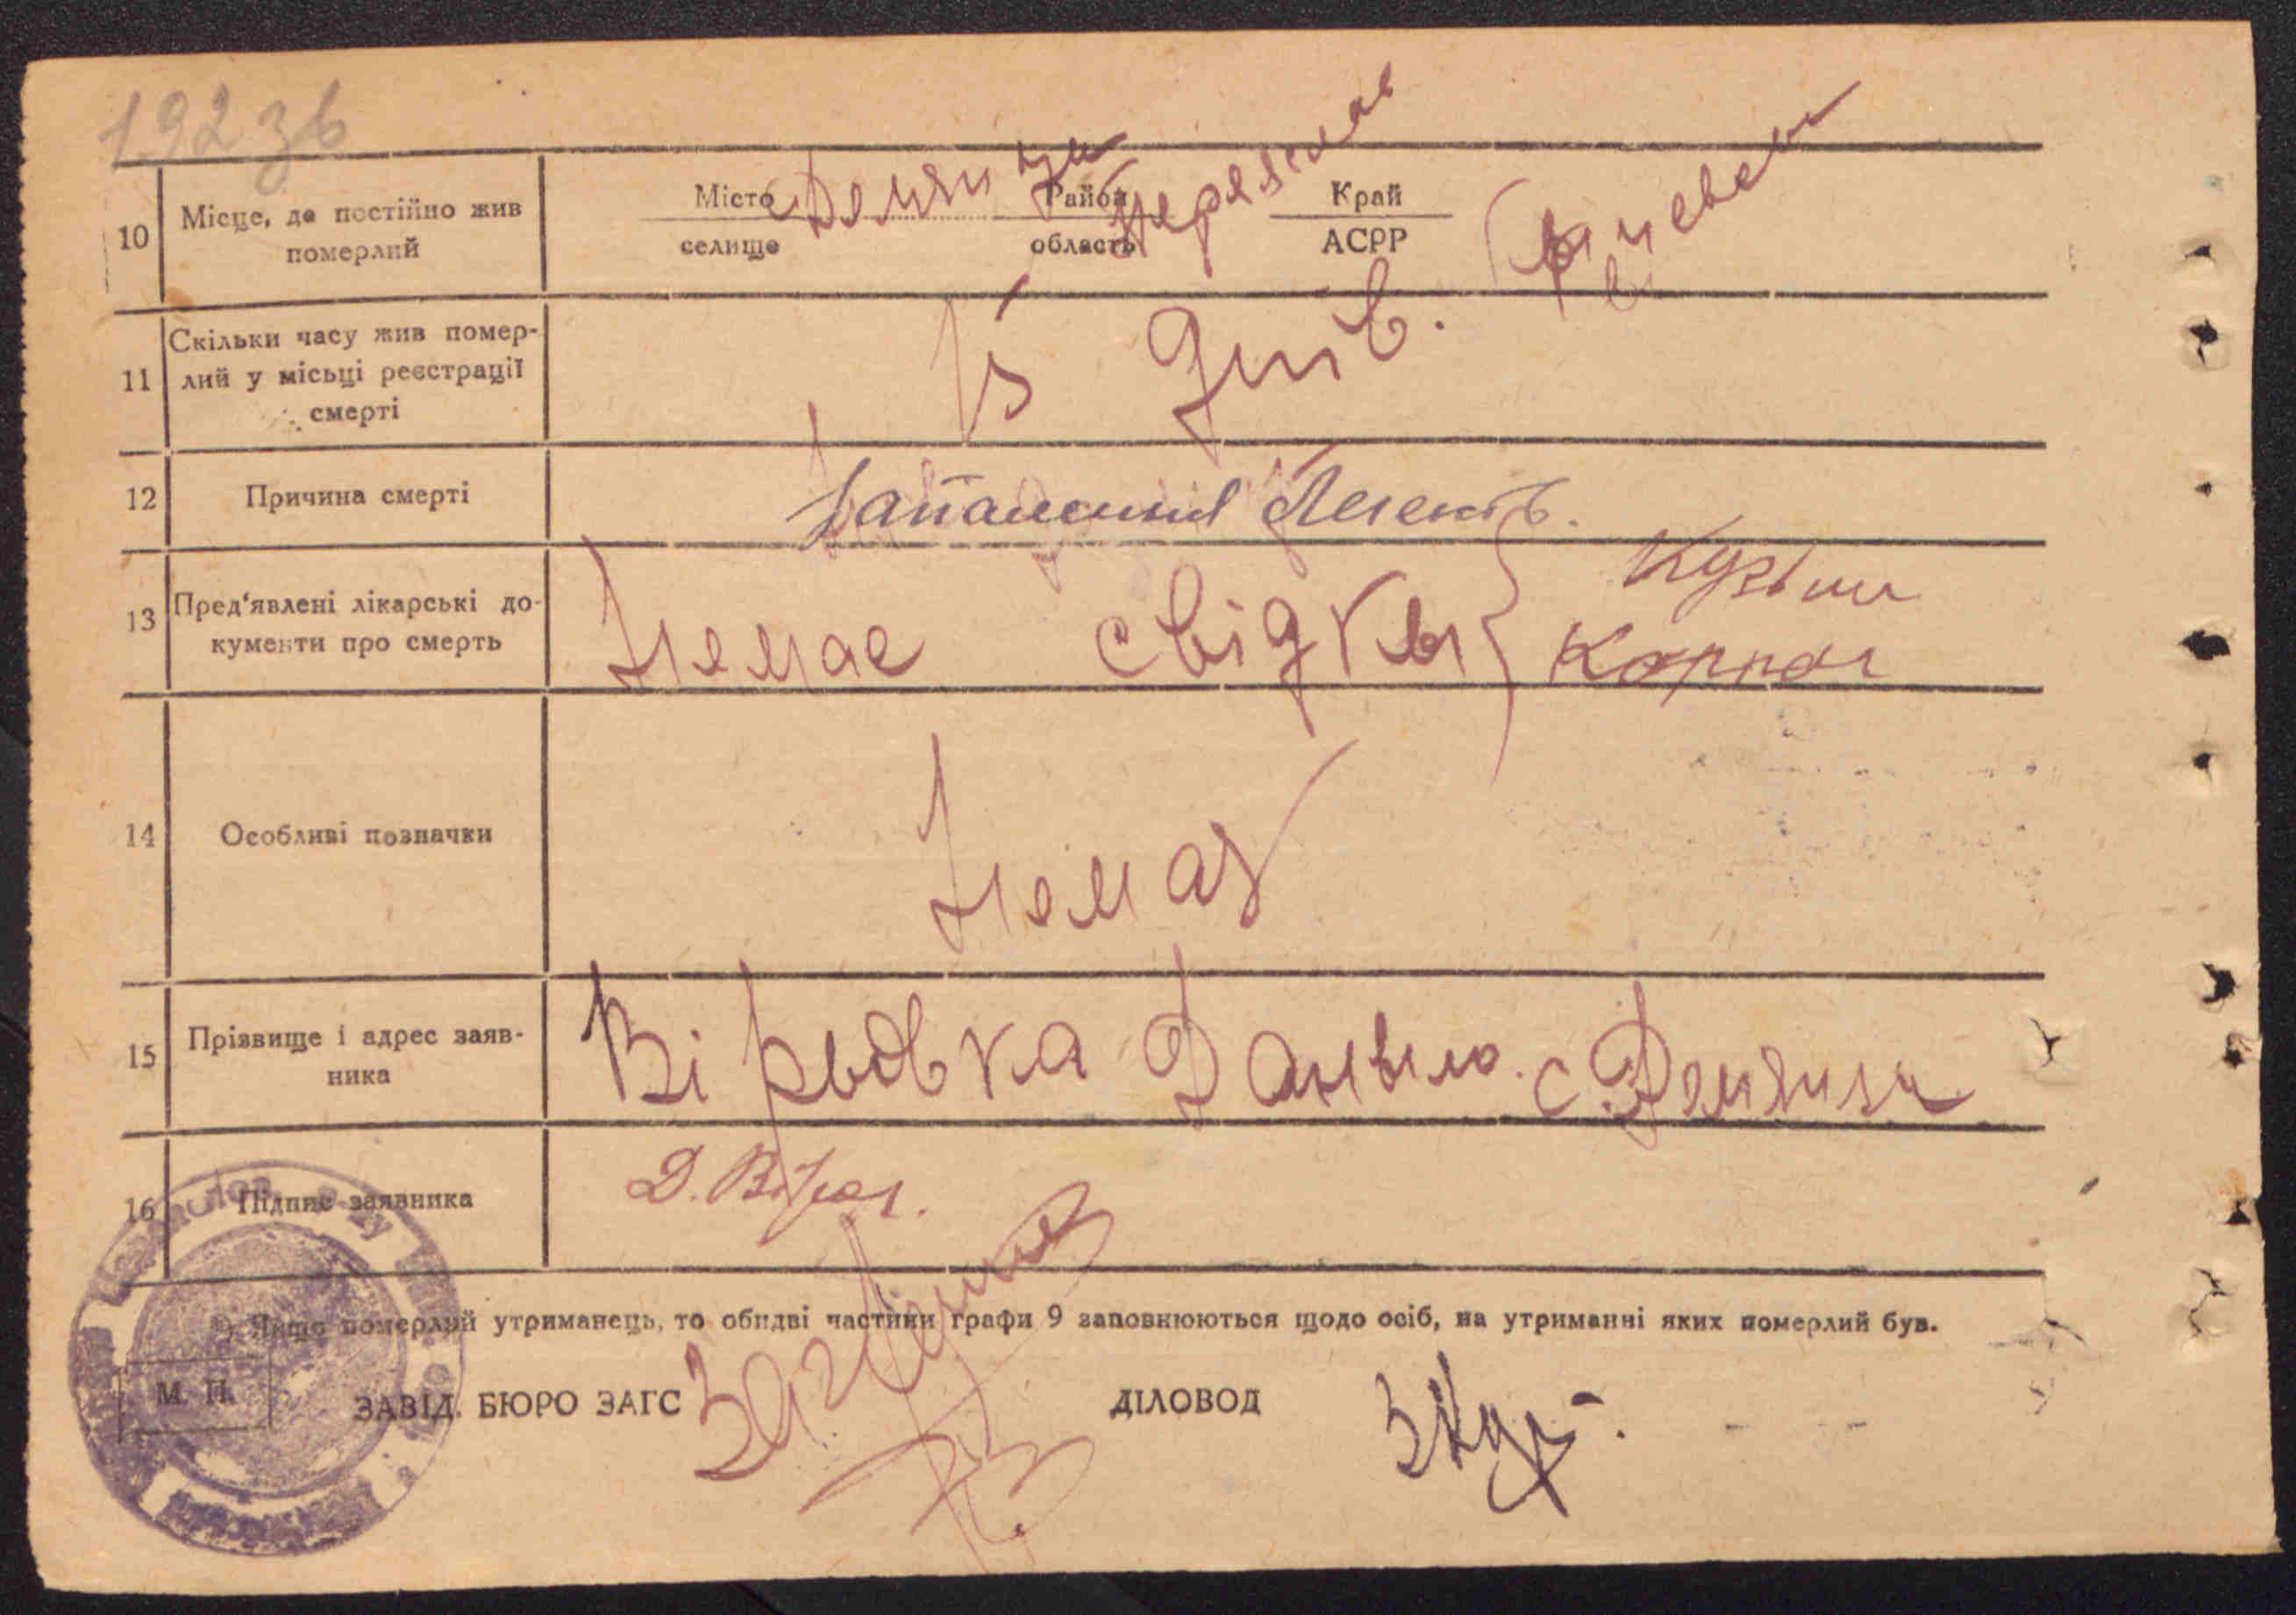 192 зв
10 Місце, де постійно жив померлий
Місто Демянци Район Переяслав Край
селище область АСРР
11 Скільки часу жив помер-
лий у місьці реєстрації
смерті
5 днів.
12 Причина смерті Запалення Легенів.
13 Пред'явлені лікарські до-
кументи про смерть
Немає свідкы Кузьма
Карпов
14 Особливі позначки Немає
15 Прізвище і адрес заяв-
ника
Вірьовка Даныло. с. Демянци
16 Підпис заявника Д. Вірьов.
*) Якщо померлий утриманець, то обидві частини графи 9 заповнюються щодо осіб, на утриманні яких померлий був.
М. П. ЗАВІД. БЮРО ЗАГС ДІЛОВОД